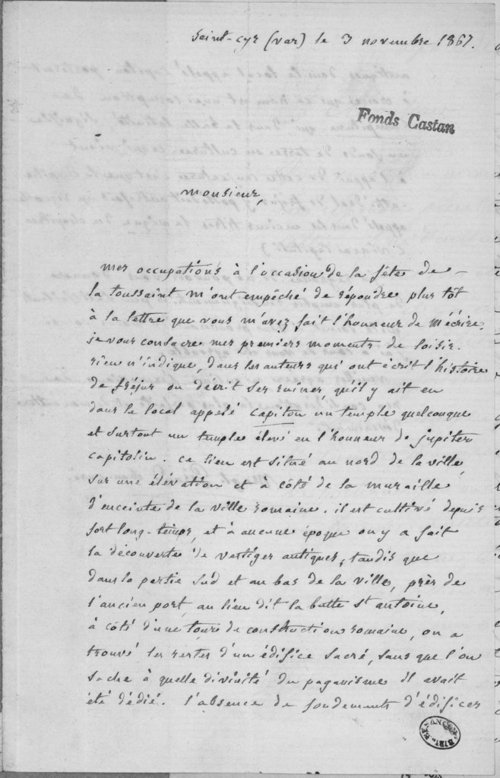 Saint-Cyr (var) le 3 novembre 1867.
Fonds Castan
Monsieur,
Mes occupations à l'occasion de la fête de
la toussaint m'ont empêché de répondre plus tôt
à la lettre que vous m'avez fait l'honneur de m'écrire.
je vous consacre mes premiers moments de loisir.
rien n'indique, dans les auteurs qui ont écrit l'histoire
de fréjus ou décrit ses ruines qu'il y ait eu
dans le local appelé Capiton un temple quelconque
et surtout un temple élevé en l'honneur de jupiter
capitolin. ce lieu est situé au nord de la ville
sur une élévation et à côté de la muraille
d'enceinte de la ville romaine. il est cultivé depuis
fort long-temps, et à aucune époque on y a fait
la découverte de vestiges antiques, tandis que
dans la partie sud et au bas de la ville, près de
l'ancien port, au lieu dit la butte st antoine,
à côté d'une tour de construction romaine, on a
trouvé les restes d'un édifice sacré, sans que l'on
sache à quelle divinité du paganisme il avait
été dédié. l'absence de fondements d'édifices